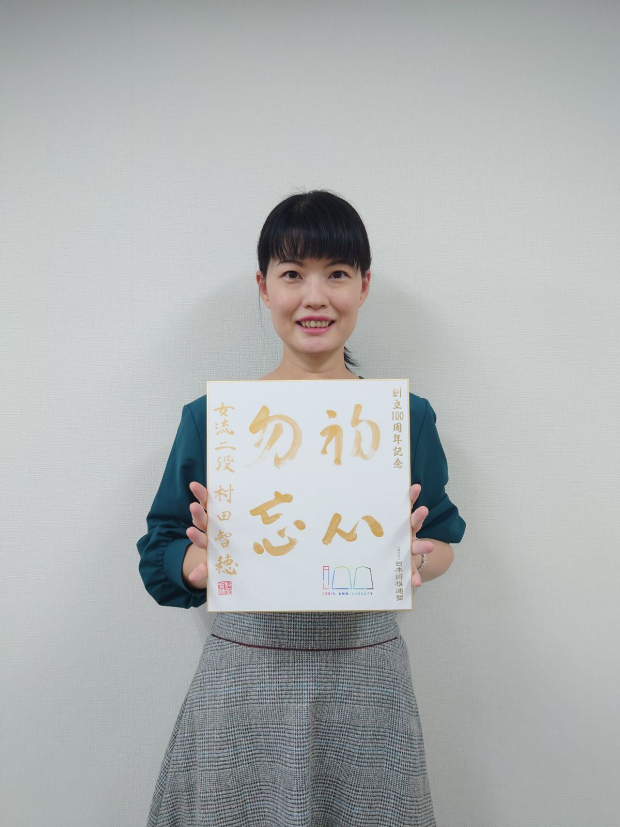 創立100周年記念
初心
勿忘
女流二段 村田智穂
日本将棋連盟